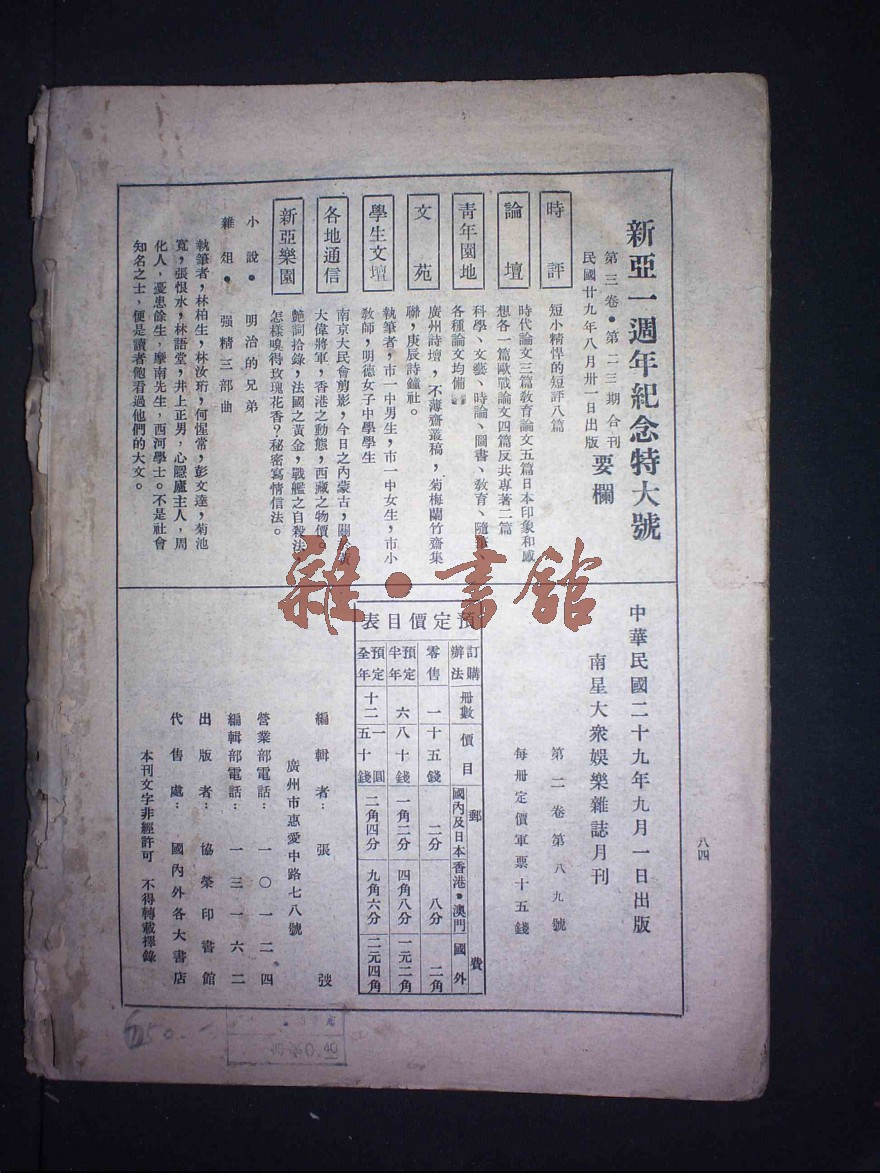 新亞一週年紀念特大號
第三卷·第二三期合刊
民國廿九年八月卅一日出版
要欄
時評
短小精悍的短評八篇
論壇
時代論文三篇教育論文五篇日本印象和感
想各一篇歐戰論文四篇反共專著二篇
青年園地
科學、文藝、時論、圖書、教育、隨筆、
各種論文均備
文苑
廣州詩壇,不薄齋叢稿,菊梅蘭竹齋集
聯,庚辰詩鐘社。
學生文壇
執筆者,市一中男生,市一中女生,市小
教師,明德女子中學學生
各地通信
南京大民會剪影,今日之內蒙古,關
大偉將軍,香港之動態,西藏之物價。
新亞樂園
艶詞拾錄,法國之黃金,戰艦之自殺法,
怎樣嗅得玫瑰花香?秘密寫情信法。
小說· 明治的兄弟
雜俎· 强精三部曲
執筆者,林柏生,林汝珩,何惺常,彭文達,菊池
寬,張恨水,林語堂,井上正男,心聽廬主人,周
化人,憂患餘生,摩南先生,西河學士。不是社會
知名之士,便是讀者他看過他們的大文。
中華民國二十九年九月一日出版
南星大衆娛樂雜誌月刊
第二卷第八九號
每冊定價軍票十五錢
預定價目表
訂購辦法 冊數 價目 郵費 國內及日本 香港·澳門 國外
零售 一 十五錢 二分 八分 二角
預定半年 六 八十錢 一角二分 四角八分 一元二角
預定全年 十二 一圓五十錢 二角四分 九角六分 二元四角
編輯者: 張弢
廣州市惠愛中路七八號
營業部電話: 一〇一二四
編輯部電話: 一三一六二
出版者: 協榮印書館
代售處: 國內外各大書店
本刊文字非經許可 不得轉載擇錄
八四
雜·書館
0.40